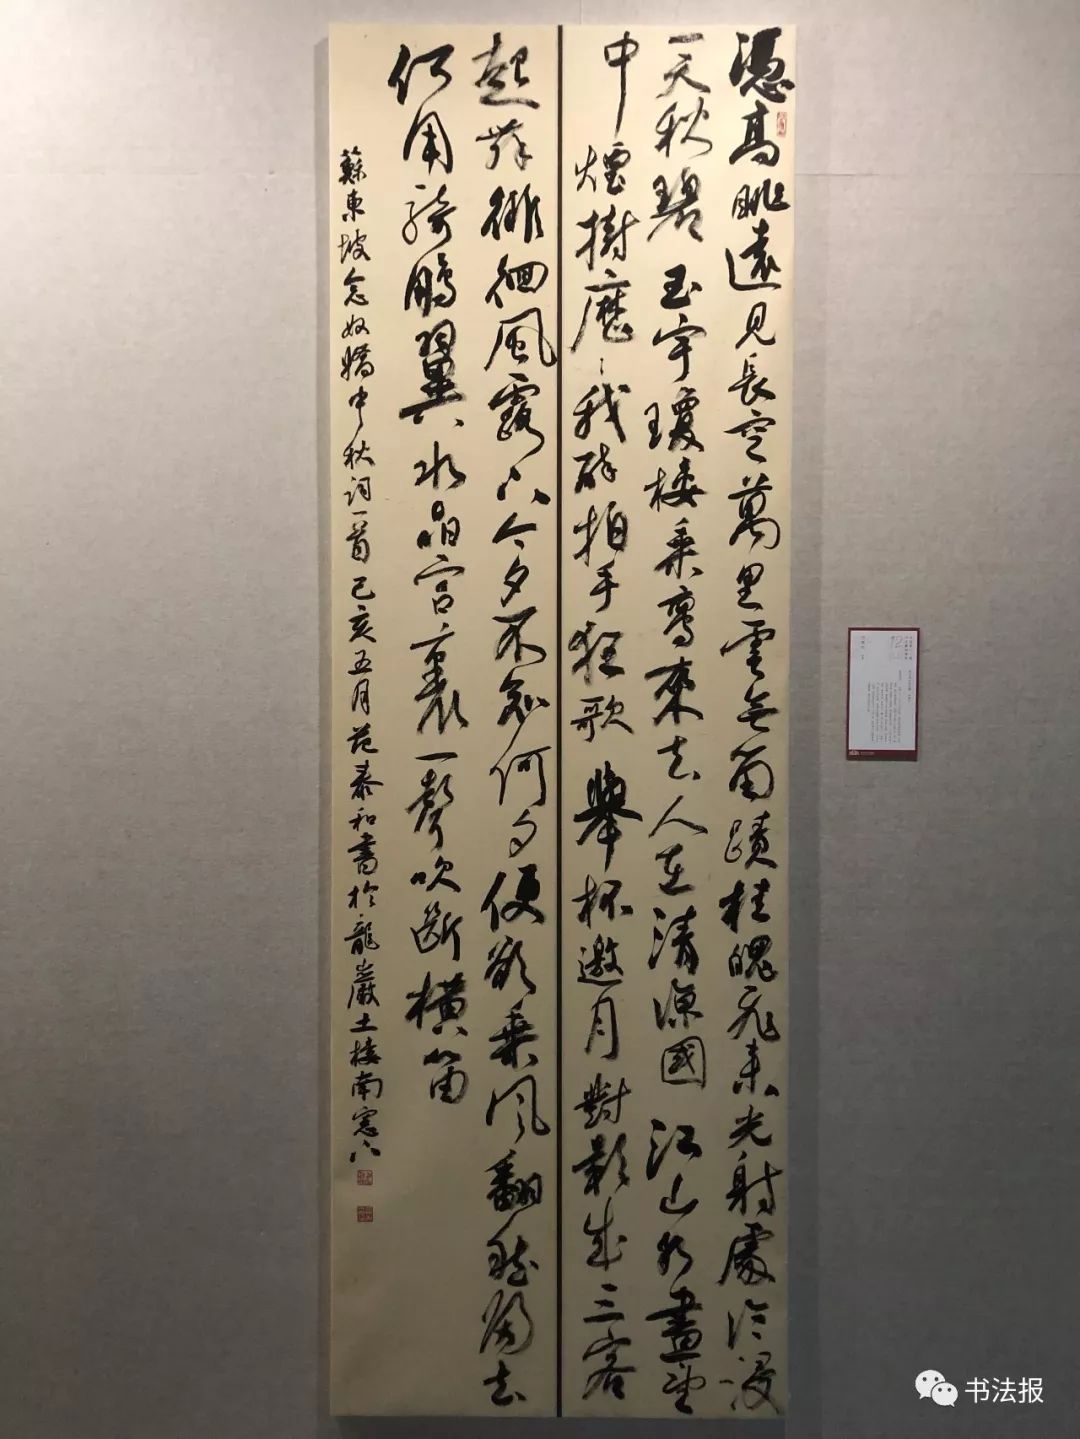 憑高眺遠見長空萬里雲無留蹟桂魄飛來光射處冷浸
一天秋碧玉宇瓊樓乘鸞來去人在清涼國江山如畫望
中煙樹歷〻我醉拍手狂歌舉杯邀月對影成三客
起舞徘徊風露下今夕不知何夕便欲乘風翻然歸去
何用騎鵬翼水晶宮裏一聲吹斷橫笛
蘇東坡念奴嬌中秋詞一首己亥五月范泰和書於龍巖土樓南窓下
书法报